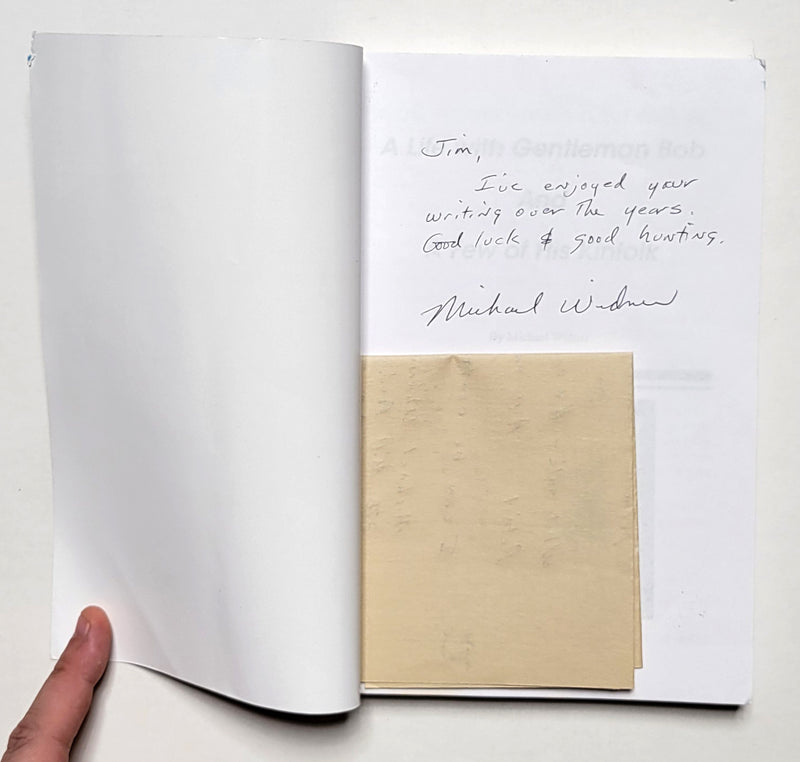 Jim,
I've enjoyed your
writing over the years.
Good luck & good hunting.
Michael Widner
A Life with Gentleman Bob
And
A Few of His Kinfolk
By Michael Widner